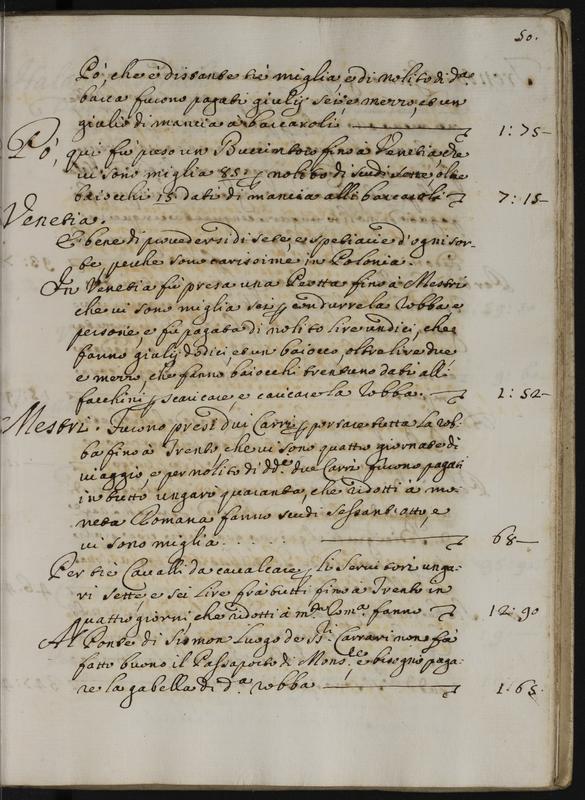 50.
Pò, che è distante tre miglia, e di nolito di da
barca furono pagati giulij sei, e mezzo, et un
giulio di mancia a barcaroli 1:75
Pò, qui fù preso un Buccintoro fino à Venetia, che
vi sono miglia 85: p nolito di scudi sette, oltre
baiocchi 15 dati di mancia alli barcaroli 7:15
Venetia.
È bene di provedersi di sete, e spetiarie d'ogni sor-
te, perche sono carissime in Polonia.
In Venetia fù presa una Peotta fino à Mestri
che vi sono miglia sei p condurre la robba, e
persone, e fù pagata di nolito lire undici, che
fanno giulij dodici, et un baiocco, oltra lire due
e mezzo, che fanno baiocchi trentuno dati alli
facchini p scaricare, e caricare la robba. 1:52
Mestri. Furono presi dui Carri p portare tutta la rob-
ba fino à Trento che vi sono quattro giornate di
viaggio, e per nolito di dd.i due Carri furono pagati
in tutto ungari quaranta, che ridotti à mo-
neta Romana fanno scudi sessantotto, e
vi sono miglia 68
Per trè Cavalli da cavalcare p li servitori unga-
ri sette, e sei lire frà tutti fino a Trento in
quattro giorni, che ridotti à m.ta Rom.a fanno 12:90
Al Ponte di Sismon luogo de SS.ri Carrari non fù
fatto buono il Passaporto di Mons.re, e bisognò paga-
re la gabella di d.a robba 1:65